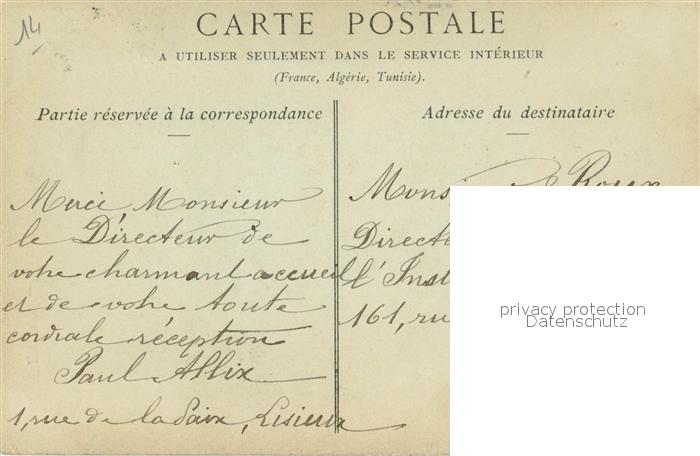 14
CARTE POSTALE
A UTILISER SEULEMENT DANS LE SERVICE INTÉRIEUR
(France, Algérie, Tunisie).
Partie réservée à la correspondance
Adresse du destinataire
Merci Monsieur
le Directeur de
votre charmant accueil
et de votre toute
cordiale réception
Paul Allix
1, rue de la Paix, Lisieux
Monsi
Direct
l'Inst
161, ru
privacy protection
Datenschutz